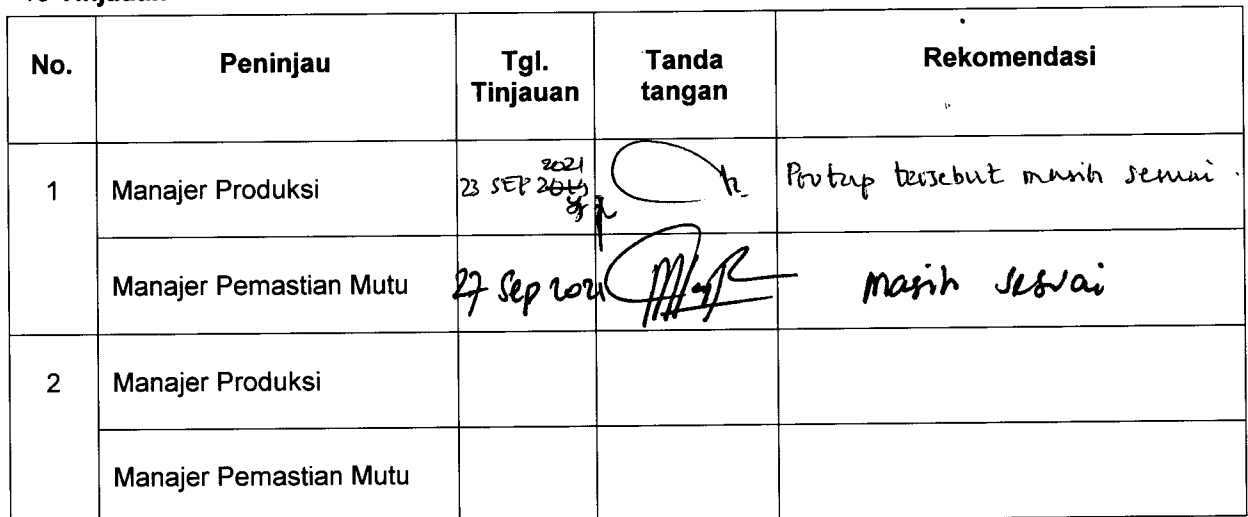 No.
Peninjau
Tgl. Tinjauan
Tanda tangan
Rekomendasi
1
Manajer Produksi
2021
23 SEP
Protap tersebut masih sesuai.
Manajer Pemastian Mutu
27 Sep 2021
masih sesuai
2
Manajer Produksi
Manajer Pemastian Mutu